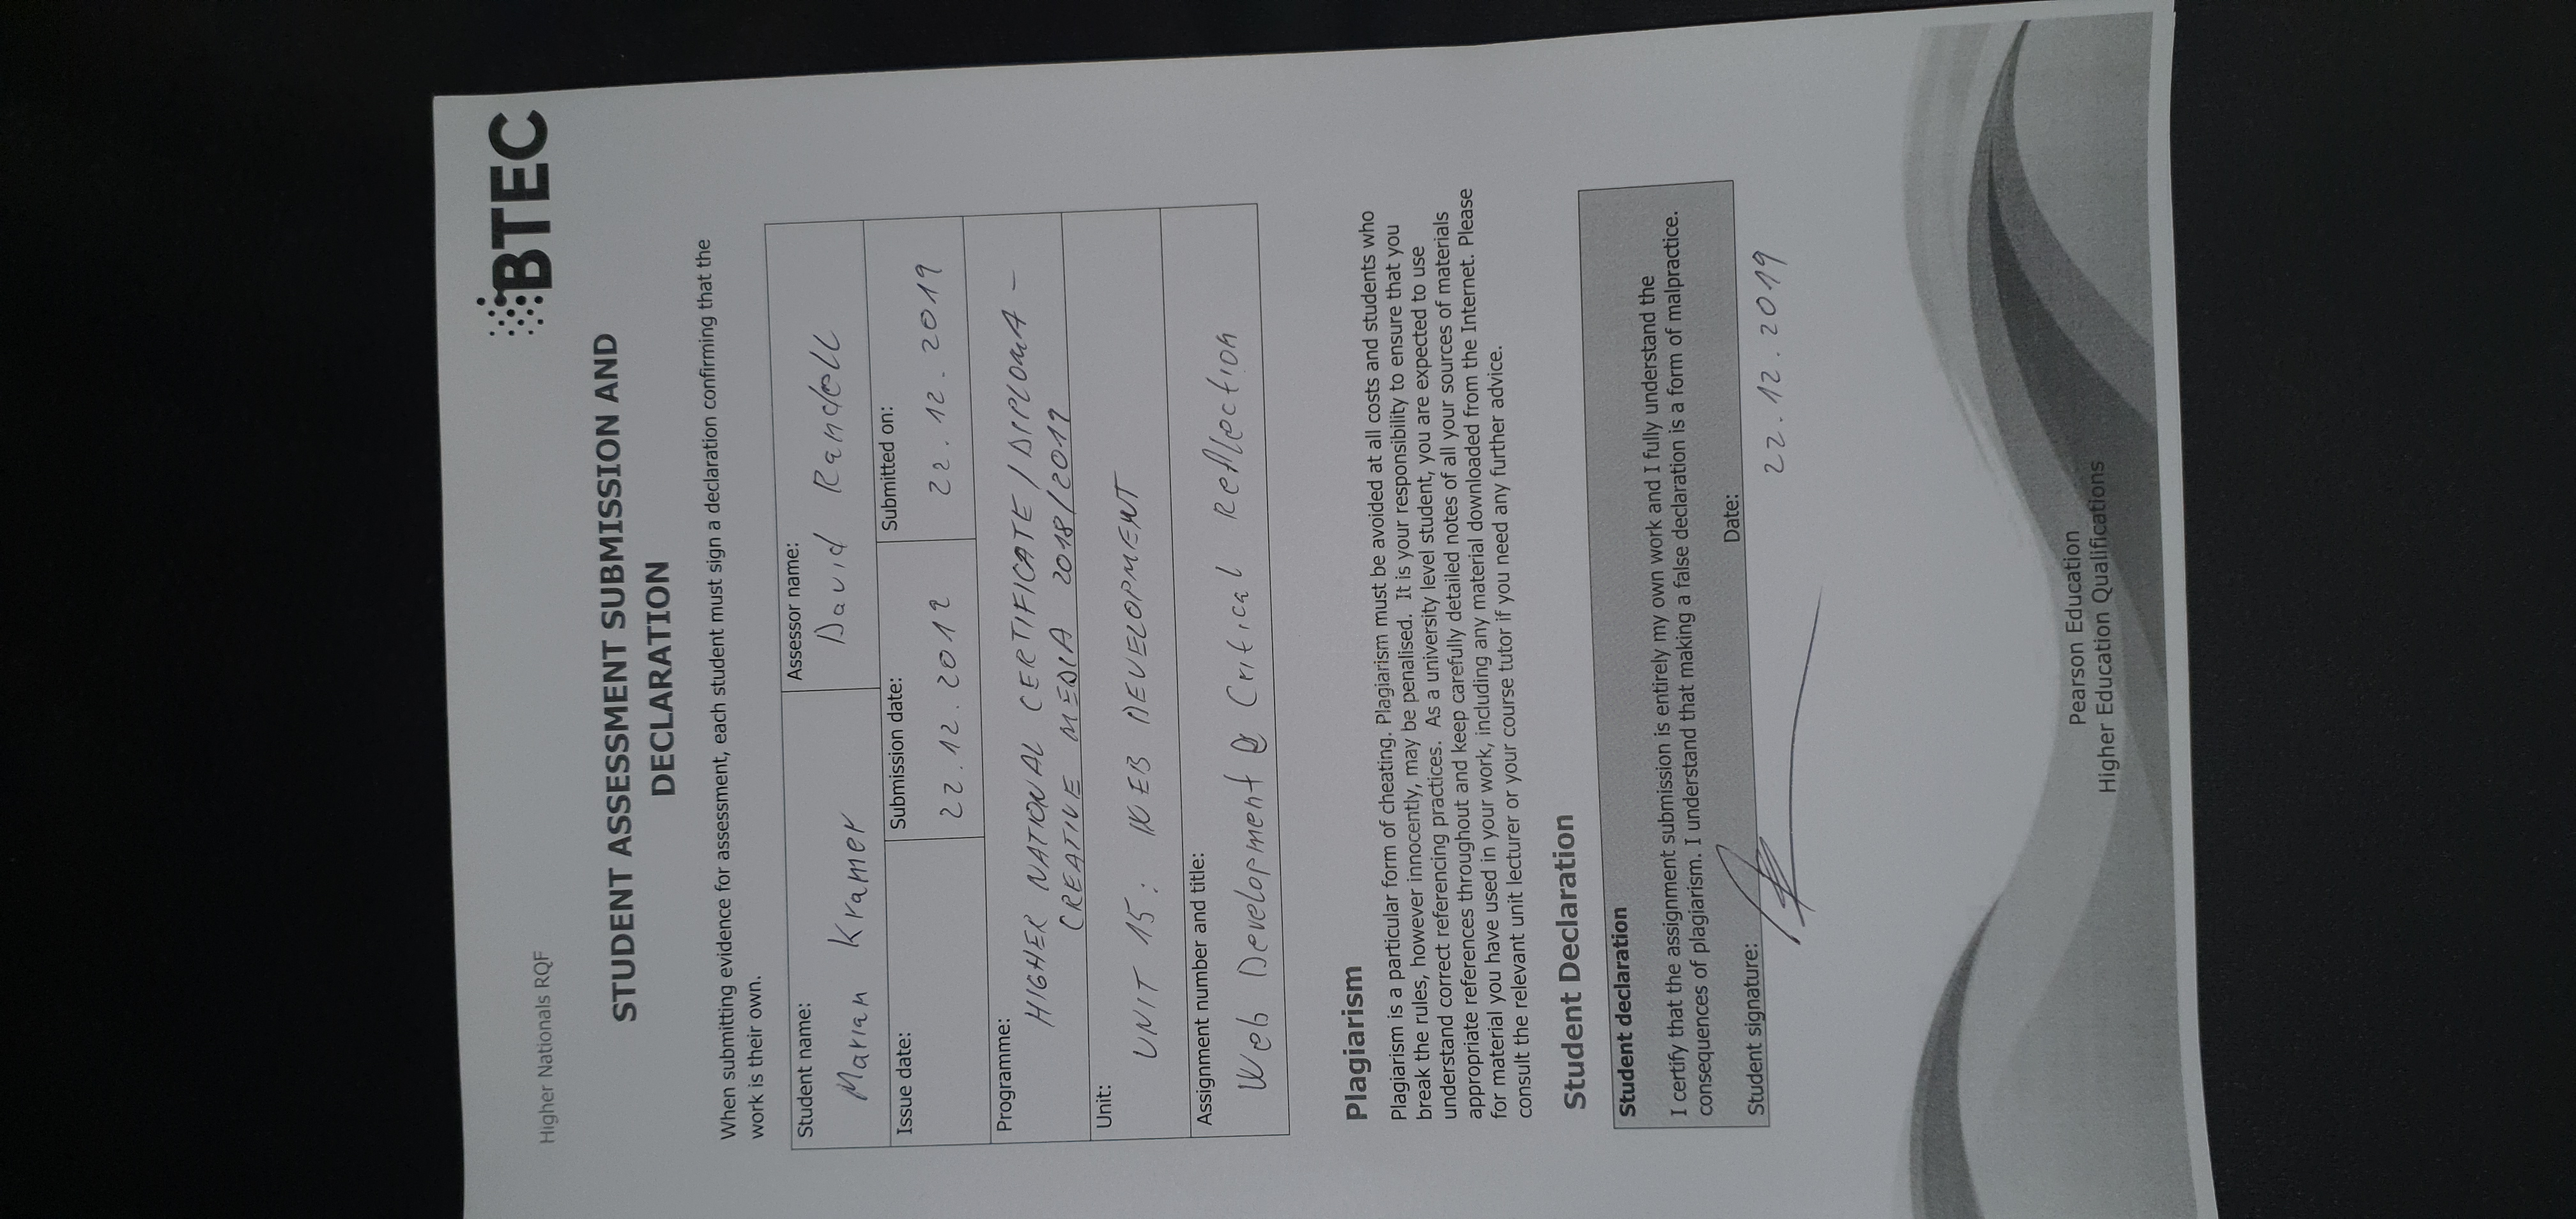 Higher Nationals RQF
BTEC
STUDENT ASSESSMENT SUBMISSION AND
DECLARATION
When submitting evidence for assessment, each student must sign a declaration confirming that the
work is their own.
Student name:
Marian Kramer
Assessor name:
David Randell
Issue date:
Submission date:
22.12.2019
Submitted on:
22.12.2019
Programme:
HIGHER NATIONAL CERTIFICATE / DIPLOMA -
CREATIVE MEDIA 2018/2019
Unit:
UNIT 15: WEB DEVELOPMENT
Assignment number and title:
Web Development & Critical Reflection
Plagiarism
Plagiarism is a particular form of cheating. Plagiarism must be avoided at all costs and students who
break the rules, however innocently, may be penalised. It is your responsibility to ensure that you
understand correct referencing practices. As a university level student, you are expected to use
appropriate references throughout and keep carefully detailed notes of all your sources of materials
for material you have used in your work, including any material downloaded from the Internet. Please
consult the relevant unit lecturer or your course tutor if you need any further advice.
Student Declaration
Student declaration
I certify that the assignment submission is entirely my own work and I fully understand the
consequences of plagiarism. I understand that making a false declaration is a form of malpractice.
Student signature:
Date:
22.12.2019
Pearson Education
Higher Education Qualifications